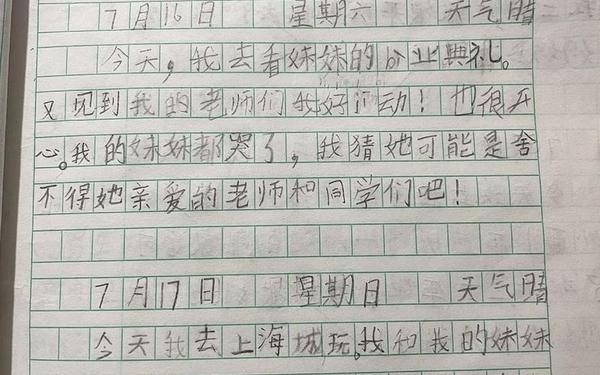 7月16日 星期六 天气晴
今天,我去看妹妹的毕业典礼。
又见到我的老师们我好激动!也很开
心。我的妹妹都哭了,我猜她可能是舍
不得她亲爱的老师和同学们吧!
7月17日 星期日 天气晴
今天我去上海城玩。我和我的妹妹